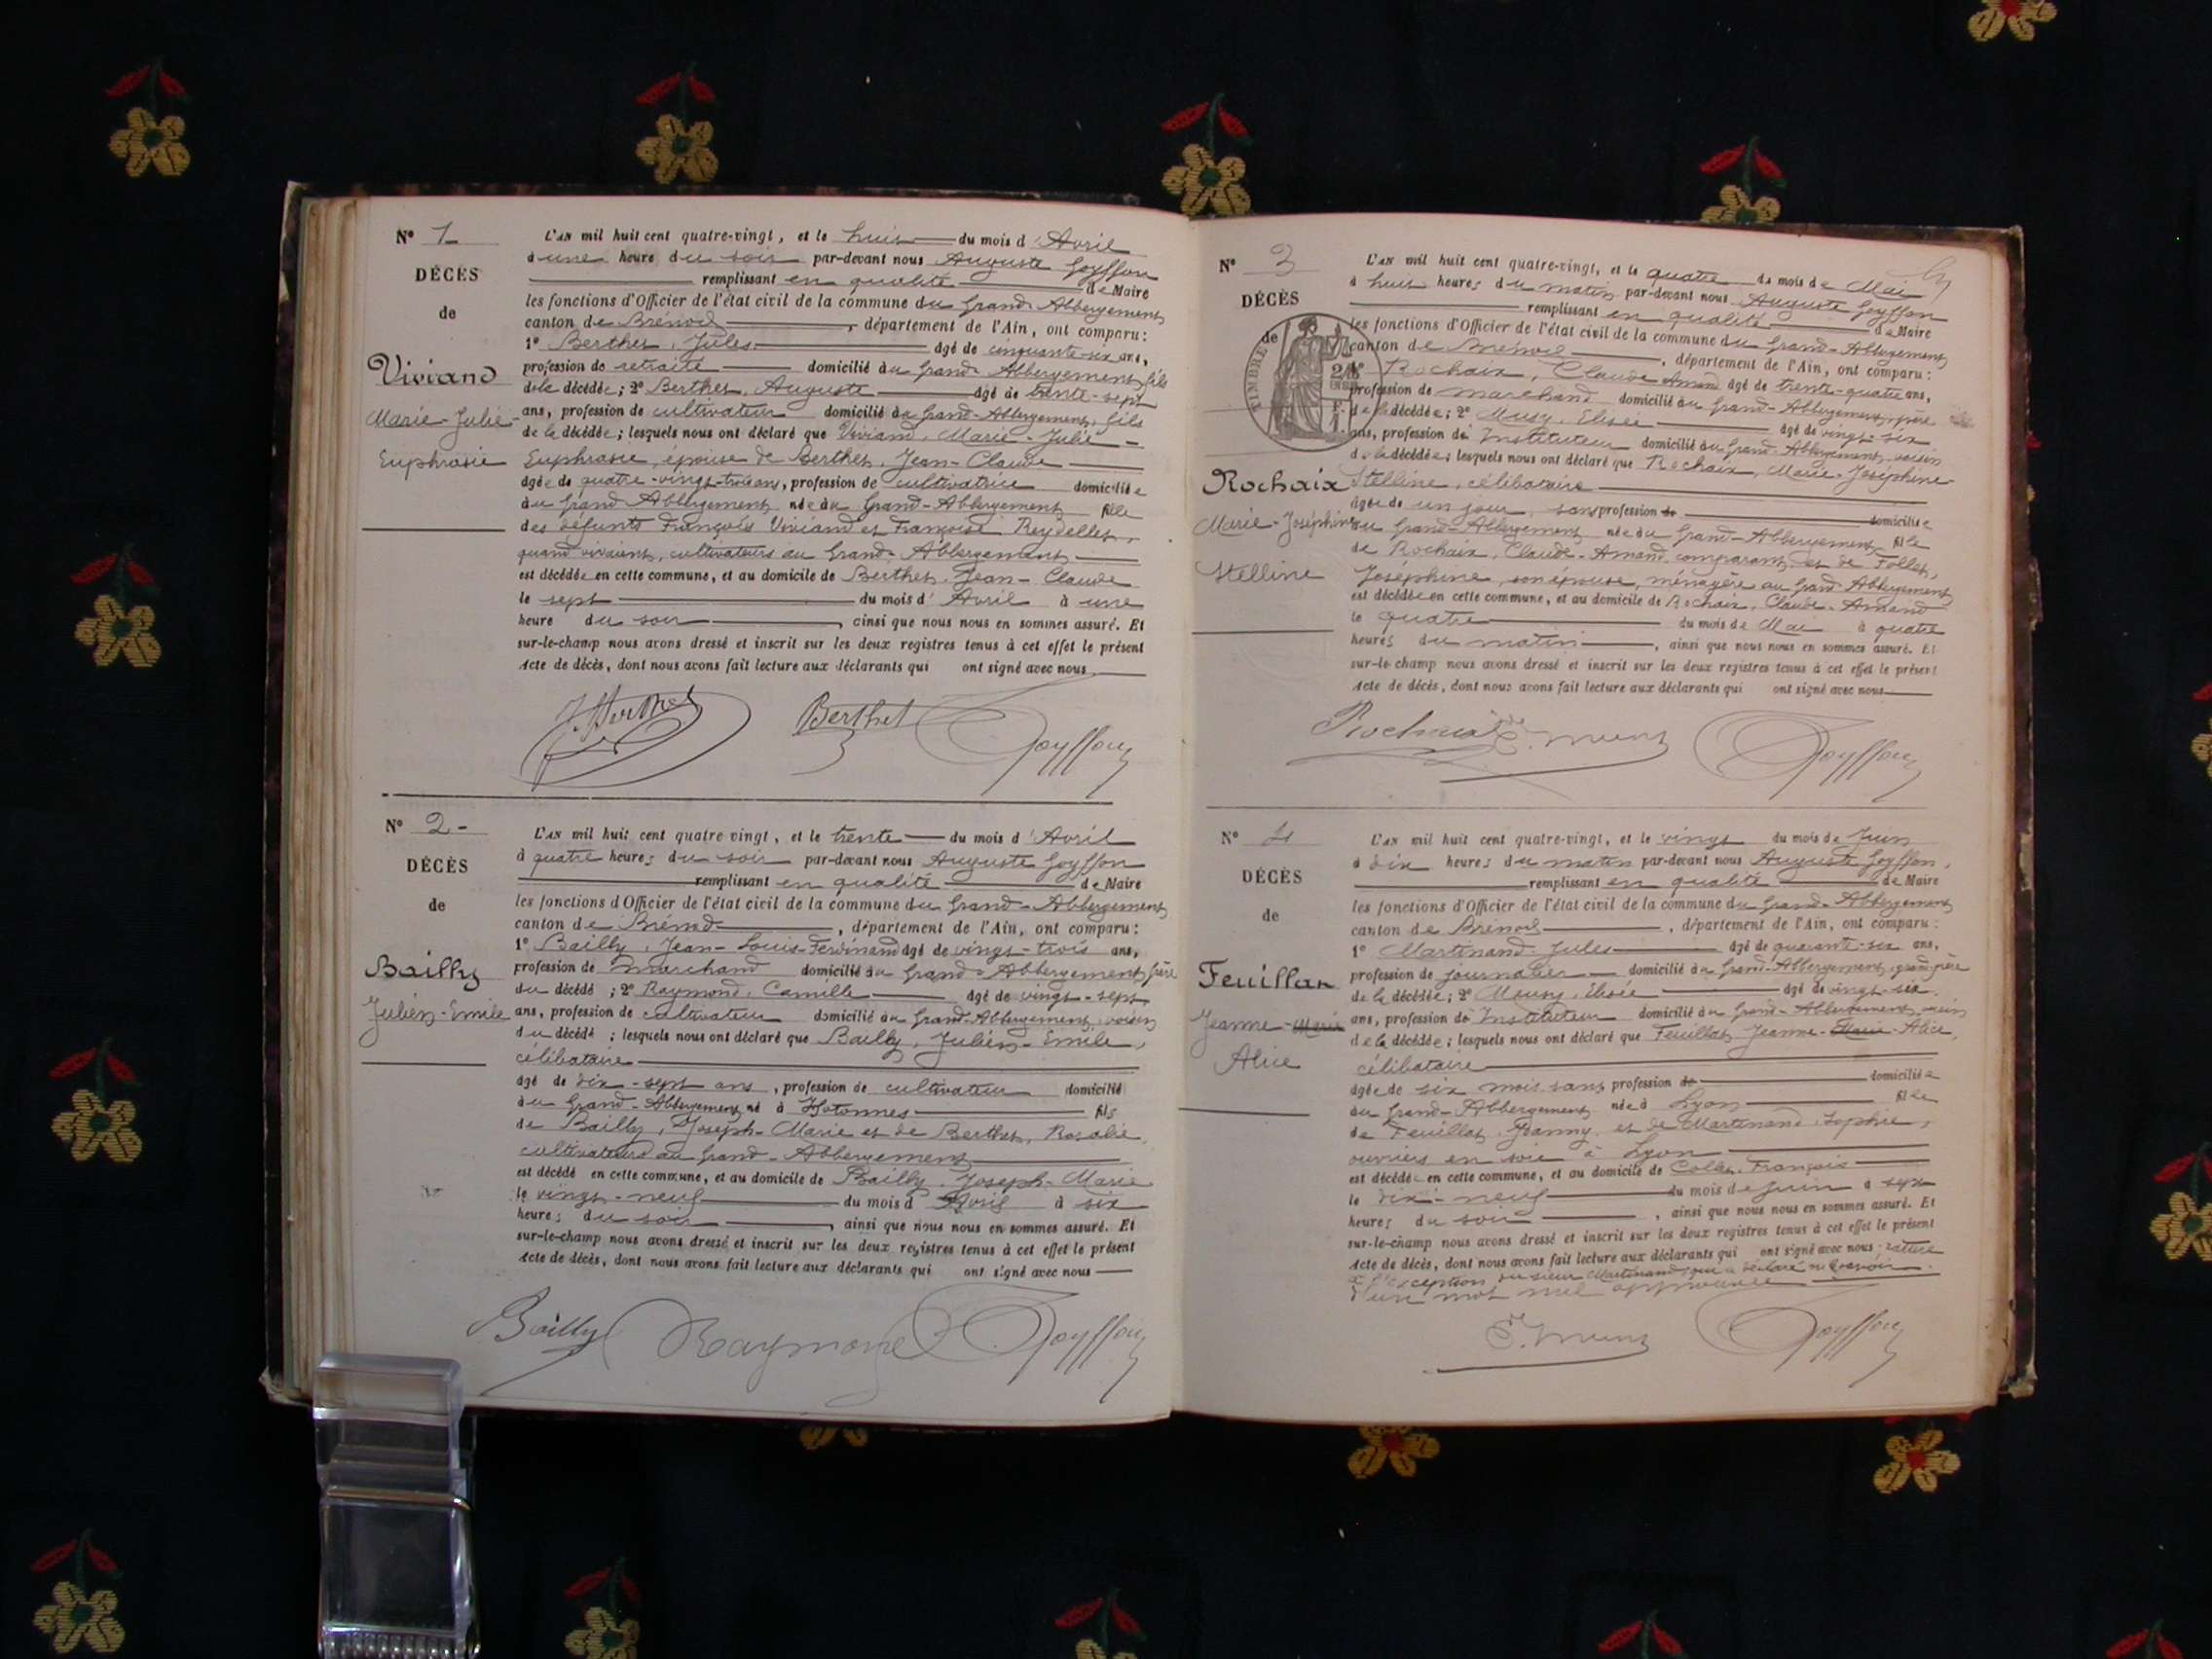 N° 1
DÉCÈS
de
Viviand
Marie-Julie-
Euphrasie
L'AN mil huit cent quatre-vingt, et le huit du mois d'Avril
à une heure du soir par-devant nous Auguste Goyffon
remplissant en qualité de Maire
les fonctions d'Officier de l'état civil de la commune du Grand-Abbergement
canton de Brénod, département de l'Ain, ont comparu :
1° Berthet, Jules âgé de cinquante-six ans,
profession de retraité domicilié au Grand-Abbergement, fils
de la décédée ; 2° Berthet, Auguste âgé de trente-sept
ans, profession de cultivateur domicilié au Grand-Abbergement, fils
de la décédée ; lesquels nous ont déclaré que Viviand, Marie-Julie-
Euphrasie, épouse de Berthet, Jean-Claude
âgée de quatre-vingt-trois ans, profession de cultivatrice domiciliée
au Grand Abbergement née au Grand-Abbergement fille
des défunts François Viviand et Françoise Reydellet,
quand vivaient, cultivateurs au Grand-Abbergement
est décédée en cette commune, et au domicile de Berthet, Jean-Claude
le sept du mois d'Avril à une
heure du soir, ainsi que nous nous en sommes assuré. Et
sur-le-champ nous avons dressé et inscrit sur les deux registres tenus à cet effet le présent
Acte de décès, dont nous avons fait lecture aux déclarants qui ont signé avec nous
J. Berthet Berthet Goyffon
N° 2-
DÉCÈS
de
Bailly
Julien-Emile
L'AN mil huit cent quatre vingt, et le trente du mois d'Avril
à quatre heures du soir par-devant nous Auguste Goyffon
remplissant en qualité de Maire
les fonctions d'Officier de l'état civil de la commune du Grand-Abbergement
canton de Brénod, département de l'Ain, ont comparu :
1° Bailly, Jean-Louis-Ferdinand âgé de vingt-trois ans,
profession de marchand domicilié au Grand-Abbergement, frère
du décédé ; 2° Raymond, Camille âgé de vingt-sept
ans, profession de cultivateur domicilié au Grand-Abbergement, voisin
du décédé ; lesquels nous ont déclaré que Bailly, Julien-Emile,
célibataire
âgé de dix-sept ans, profession de cultivateur domicilié
au Grand-Abbergement né à Hotonnes fils
de Bailly, Joseph-Marie et de Berthet, Rosalie,
cultivateurs au Grand-Abbergement
est décédé en cette commune, et au domicile de Bailly, Joseph-Marie
le vingt-neuf du mois d'Avril à six
heures du soir, ainsi que nous nous en sommes assuré. Et
sur-le-champ nous avons dressé et inscrit sur les deux registres tenus à cet effet le présent
Acte de décès, dont nous avons fait lecture aux déclarants qui ont signé avec nous
Bailly Raymond C. Goyffon
N° 3
DÉCÈS
de
TIMBRE
Rochaix
Marie-Joséphine
Stelline
L'AN mil huit cent quatre-vingt, et le quatre du mois de Mai
à huit heures du matin par-devant nous Auguste Goyffon
remplissant en qualité de Maire
les fonctions d'Officier de l'état civil de la commune du Grand-Abbergement
canton de Brénod, département de l'Ain, ont comparu :
1° Rochaix, Claude Amand âgé de trente-quatre ans,
profession de marchand domicilié au Grand-Abbergement, père
de la décédée ; 2° Musy, Elisée âgé de vingt-six
ans, profession de Instituteur domicilié au Grand-Abbergement, voisin
de la décédée ; lesquels nous ont déclaré que Rochaix, Marie-Joséphine-
Stelline, célibataire
âgée de un jour, sans profession de domiciliée
au Grand-Abbergement née au Grand-Abbergement fille
de Rochaix, Claude-Amand, comparant, et de Follet,
Joséphine, son épouse, ménagère au Grand-Abbergement
est décédée en cette commune, et au domicile de Rochaix, Claude-Amand
le quatre du mois de Mai à quatre
heures du matin, ainsi que nous nous en sommes assuré. Et
sur-le-champ nous avons dressé et inscrit sur les deux registres tenus à cet effet le présent
Acte de décès, dont nous avons fait lecture aux déclarants qui ont signé avec nous
Rochaix Goyffon
N° 4
DÉCÈS
de
Feuillat
Jeanne-Marie
Alice
L'AN mil huit cent quatre-vingt, et le vingt du mois de Juin
à dix heures du matin par-devant nous Auguste Goyffon,
remplissant en qualité de Maire
les fonctions d'Officier de l'état civil de la commune du Grand-Abbergement
canton de Brénod, département de l'Ain, ont comparu :
1° Martinand Jules âgé de quarante-six ans,
profession de journalier domicilié au Grand-Abbergement, grand-père
de la décédée ; 2° Musy, Elisée âgé de vingt-six
ans, profession de Instituteur domicilié au Grand-Abbergement, voisin
de la décédée ; lesquels nous ont déclaré que Feuillat, Jeanne-Marie-Alice,
célibataire
âgée de six mois, sans profession de domiciliée
au Grand-Abbergement née à Lyon fille
de Feuillat, et de Martinand, Sophie,
ouvriers en soie à Lyon
est décédée en cette commune, et au domicile de Collet, François
le dix-neuf du mois de Juin à sept
heures du soir, ainsi que nous nous en sommes assuré. Et
sur-le-champ nous avons dressé et inscrit sur les deux registres tenus à cet effet le présent
Acte de décès, dont nous avons fait lecture aux déclarants qui ont signé avec nous, rature
à l'exception du sieur Martinand qui a déclaré ne savoir.
d'un mot nul approuvée
Goyffon